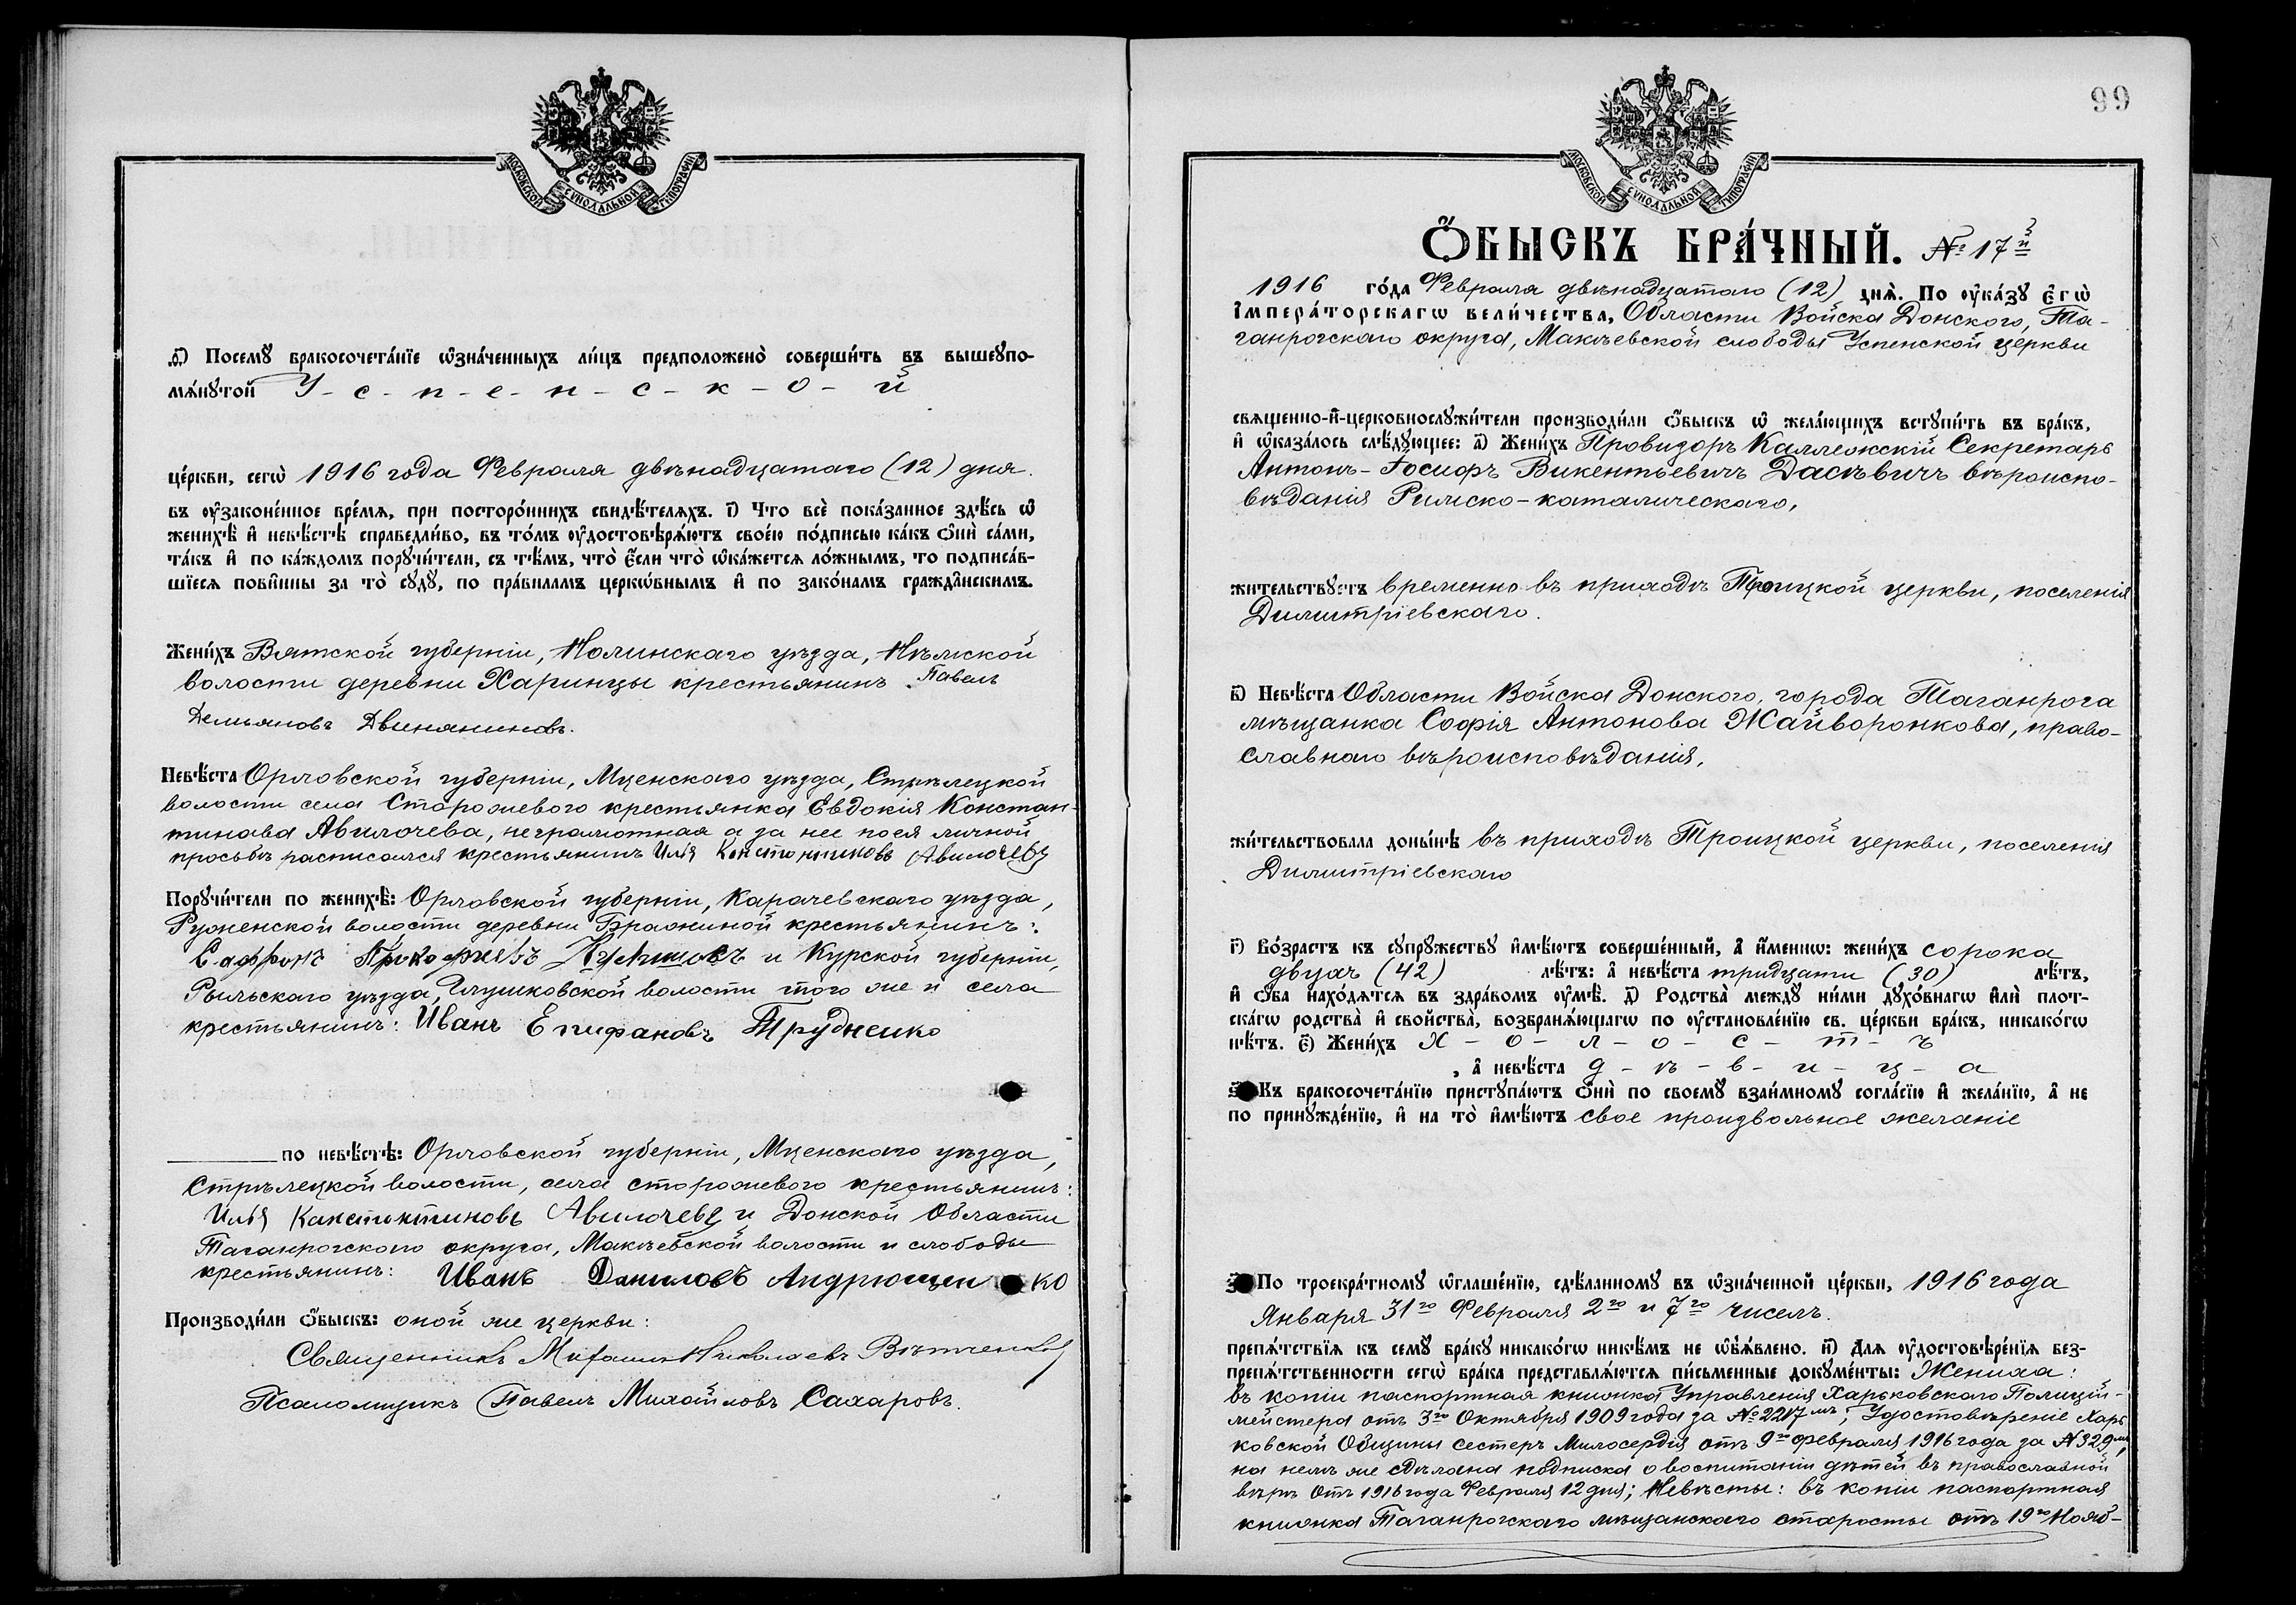 МОСКОВСКОЙ СѴНОДАЛЬНОЙ ТИПОГРАФІИ
ѳ҃) Посемꙋ бракосочета́нїе ѡ҆зна́ченныхъ ли́цъ предположено̀ соверши́ть въ вышеупо-
мѧ́нꙋтой У - с - п - е - н - с - к - о - й
це́ркви, сегѡ̀ 1916 года Февраля двѣнадцатаго (12) дня.
въ ᲂу҆зако́ненное вре́мѧ, при посторо́ннихъ свидѣ́телѧхъ. і҃) Что всѐ пока́занное здѣ́сь ѡ҆
женихѣ̀ и҆ невѣ́стѣ справедли́во, въ то́мъ ᲂу҆достовѣрѧ́ютъ свое́ю по́дписью ка́къ ѻ҆нѝ са́ми,
та́къ и҆ по ка́ждомъ порꙋчи́тели, съ тѣ́мъ, что̀ є҆́сли что̀ ѡ҆ка́жетсѧ ло́жнымъ, то подписа́в-
шїесѧ пови́нны за то̀ сꙋдꙋ̀, по пра́виламъ церкѡ́внымъ и҆ по зако́намъ гражда́нскимъ.
Жени́хъ Вятской губерніи, Нолинскаго уѣзда, Нѣмской
волости деревни Харинцы крестьянинъ Павелъ
Демьяновъ Двиняниновъ.
Невѣ́ста Орловской губерніи, Мценскаго уѣзда, Стрѣлецкой
волости села Сторожевого крестьянка Евдокія Констан-
тинова Авилочева, неграмотная а за нее по ея личной
просьбѣ расписался крестьянинъ Илья Константиновъ Авилочевъ
Порꙋчи́тели по женихѣ̀: Орловской губерніи, Карачевскаго уѣзда,
Руженской волости деревни Бражиной крестьянинъ:
Софронъ Прокофиевъ и Курской губерніи,
Рыльскаго уѣзда, Глушковской волости того же и села
крестьянинъ: Иванъ Епифановъ Трудненко
по невѣ́стѣ: Орловской губерніи, Мценскаго уѣзда,
Стрѣлецкой волости, села сторожевого крестьянинъ:
Илья Канстинтиновъ Авилочевъ и Донской Области
Таганрогскаго округа, Макѣевской волости и слободы
крестьянинъ: Иванъ Даниловъ Андрющенко
Производи́ли ѻ҆́быскъ: оной же церкви:
Священникъ Михаилъ Николаевъ
Псаломщикъ Павелъ Михайловъ Сахаровъ.
99
МОСКОВСКОЙ СѴНОДАЛЬНОЙ ТИПОГРАФІИ
Ѻ҆́БЫСКЪ БРА́ЧНЫЙ. № 17й
1916 го́да Февраля двѣнадцатаго (12) днѧ̀. По ᲂу҆ка́зꙋ є҆гѡ̀
і҆мпера́торскагѡ вели́чества, Области Войска Донского, Та-
ганрогскаго округа, Макѣевской слободы Успенской церкви
свѧщенно-и҆-церковнослꙋжи́тели производи́ли ѻ҆́быскъ ѡ҆ жела́ющихъ встꙋпи́ть въ бра́къ,
и҆ ѡ҆каза́лось слѣ́дꙋющее: а҃) Жени́хъ Провизоръ Каллежскій Секретарь
Антонъ-Іосифъ Викентьевичъ Дасѣвичъ вѣроиспо-
вѣданія Римско-каталическаго,
жи́тельствꙋетъ временно въ приходѣ Троицкой церкви, поселенія
Димитріевскаго.
в҃) Невѣ́ста Области Войска Донского, города Таганрога
мѣщанка Софія Антонова Жайворонкова, право-
славнаго вѣроисповѣданія,
жи́тельствовала доны́нѣ въ приходѣ Троицкой церкви, поселенія
Димитріевскаго
г҃) Во́зрастъ къ сꙋпрꙋ́жествꙋ и҆мѣ́ютъ соверше́нный, а҆ и҆́меннѡ: жени́хъ сорока
двухъ (42) лѣ́тъ: а҆ невѣ́ста тридцати (30) лѣ́тъ,
и҆ ѻ҆́ба нахо́дѧтсѧ въ здра́вомъ ᲂу҆мѣ̀. д҃) Родства̀ междꙋ ни́ми дꙋхо́внагѡ и҆лѝ плот-
ска́гѡ родства̀ и҆ свойства̀, возбранѧ́ющагѡ по ᲂу҆становле́нїю св. це́ркви бра́къ, никако́гѡ
нѣ́тъ. є҃) Жени́хъ х - о - л - о - с - т - ъ
, а҆ невѣ́ста д - ѣ - в - и - ц - а
Къ бракосочета́нїю пристꙋпа́ютъ ѻ҆нѝ по своемꙋ̀ взаи́мномꙋ согла́сїю и҆ жела́нїю, а҆ не
по принꙋжде́нїю, и҆ на то̀ и҆мѣ́ютъ свое произвольное желаніе
По троекра́тномꙋ ѡ҆глаше́нїю, сдѣ́ланномꙋ въ ѡ҆зна́ченной це́ркви, 1916 года
Января 31го Февраля 2го и 7го чиселъ.
препѧ́тствїѧ къ семꙋ̀ бра́кꙋ никако́гѡ никѣ́мъ не ѡ҆б̾ѧ́влено. и҃) Для ᲂу҆достовѣре́нїѧ без-
препѧ́тственности сегѡ̀ бра́ка представлѧ́ютсѧ пи́сьменные докꙋме́нты: Жениха:
въ копіи паспортная книжка Управленія Харьковскаго Полицій-
мейстера отъ 3го Октября 1909 года за № 2217мъ; Удостовѣреніе Харь-
ковской Общины сестеръ Милосердія отъ 9го Февраля 1916 года за № 329мъ,
на немъ же сдѣлана подписка о воспитаніи дѣтей въ православной
вѣрѣ отъ 1916 года Февраля 12 дня; Невѣсты: въ копіи паспортная
книжка Таганрогскаго мѣщанскаго старосты отъ 19го Нояб-